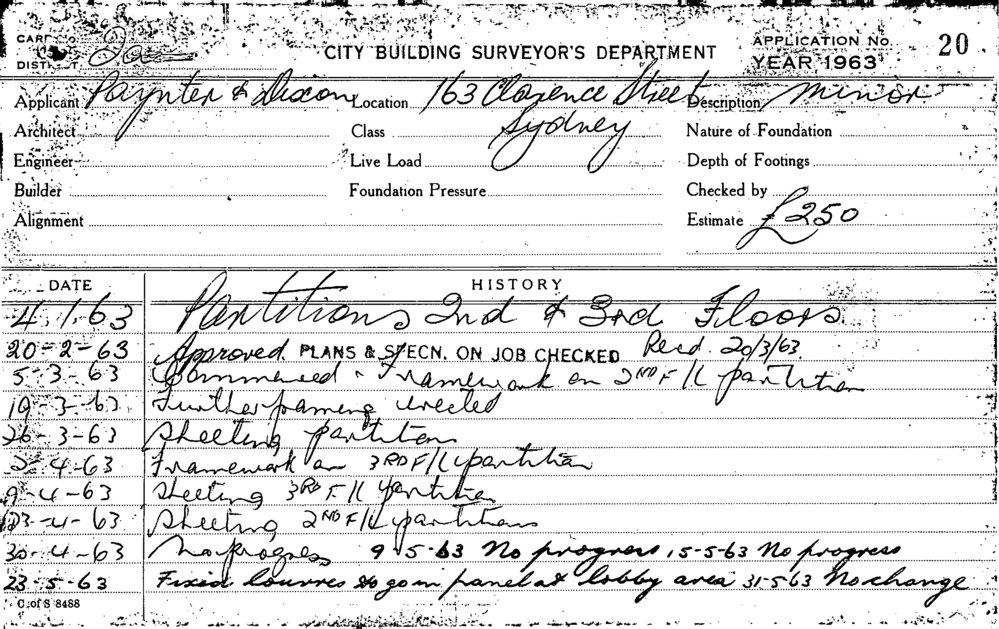 CARD No. CITY BUILDING SURVEYOR'S DEPARTMENT APPLICATION No. 20
DISTRICT 2a YEAR 1963
Applicant Paynter & Dixon Location 163 Clarence Street Description minor
Architect Class Sydney Nature of Foundation
Engineer Live Load Depth of Footings
Builder Foundation Pressure Checked by
Alignment Estimate £250
DATE HISTORY
4.1.63 Partitions 2nd & 3rd Floors
20-2-63 Approved. PLANS & SPECN. ON JOB CHECKED Recd 20/3/63.
5-3-63 Commenced - Framework on 2ND F/L partition
19-3-63 Further framing erected
26-3-63 Sheeting partition
2-4-63 Framework on 3RD F/L partition
9-4-63 Sheeting 3RD F/L partition
23-4-63 Sheeting 2ND F/L partitions
30-4-63 No progress 9-5-63 No progress, 15-5-63 No progress
23-5-63 Fixed louvres to go in panel at lobby area 31-5-63 No change
C. of S 8488